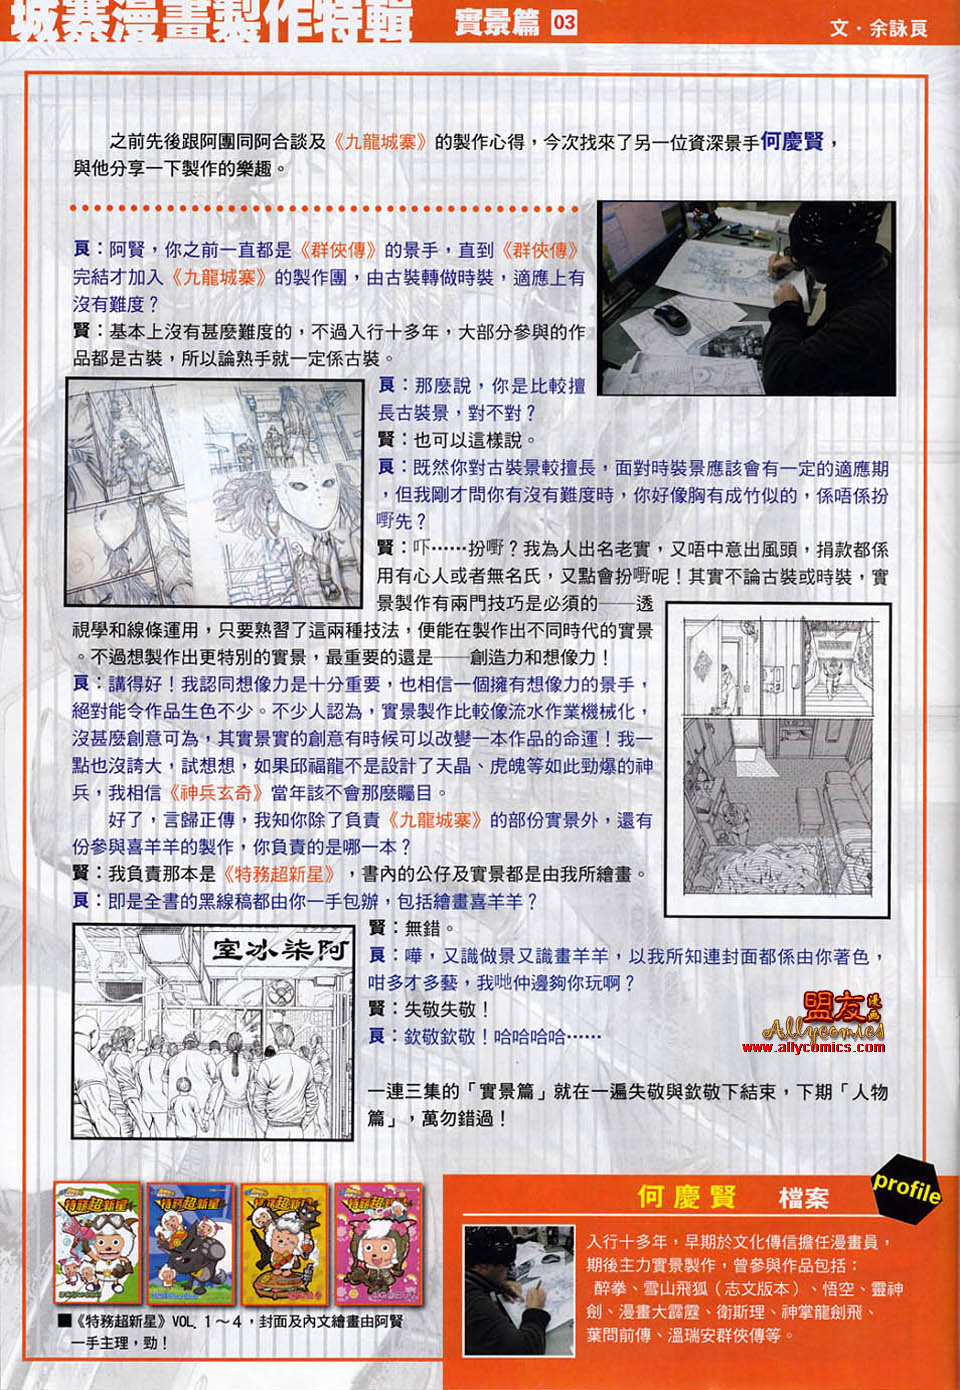 城寨漫畫製作特輯 實景篇 03
文·余詠莨
之前先後跟阿團同阿合談及《九龍城寨》的製作心得，今次找來了另一位資深景手何慶賢，
與他分享一下製作的樂趣。
莨：阿賢，你之前一直都是《群俠傳》的景手，直到《群俠傳》
完結才加入《九龍城寨》的製作團，由古裝轉做時裝，適應上有
沒有難度？
賢：基本上沒有甚麼難度的，不過入行十多年，大部分參與的作
品都是古裝，所以論熟手就一定係古裝。
莨：那麼說，你是比較擅
長古裝景，對不對？
賢：也可以這樣說。
莨：既然你對古裝景較擅長，面對時裝景應該會有一定的適應期
，但我剛才問你有沒有難度時，你好像胸有成竹似的，係唔係扮
嘢先？
賢：吓……扮嘢？我為人出名老實，又唔中意出風頭，捐款都係
用有心人或者無名氏，又點會扮嘢呢！其實不論古裝或時裝，實
景製作有兩門技巧是必須的──透
視學和線條運用，只要熟習了這兩種技法，便能在製作出不同時代的實景
。不過想製作出更特別的實景，最重要的還是──創造力和想像力！
莨：講得好！我認同想像力是十分重要，也相信一個擁有想像力的景手，
絕對能令作品生色不少。不少人認為，實景製作比較像流水作業機械化，
沒甚麼創意可為，其實景實的創意有時候可以改變一本作品的命運！我一
點也沒誇大，試想想，如果邱福龍不是設計了天晶、虎魄等如此勁爆的神
兵，我相信《神兵玄奇》當年該不會那麼矚目。
好了，言歸正傳，我知你除了負責《九龍城寨》的部份實景外，還有
份參與喜羊羊的製作，你負責的是哪一本？
賢：我負責那本是《特務超新星》，書內的公仔及實景都是由我所繪畫。
莨：即是全書的黑線稿都由你一手包辦，包括繪畫喜羊羊？
賢：無錯。
莨：嘩，又識做景又識畫羊羊，以我所知連封面都係由你著色，
咁多才多藝，我哋仲邊夠你玩啊？
賢：失敬失敬！
莨：欽敬欽敬！哈哈哈哈……
一連三集的「實景篇」就在一遍失敬與欽敬下結束，下期「人物
篇」，萬勿錯過！
室冰柒阿
盟友漫画
Allycomics
www.allycomics.com
特務超新星
特務超新星
特務超新星
特務超新星
■《特務超新星》VOL. 1～4，封面及內文繪畫由阿賢
一手主理，勁！
何慶賢 檔案
profile
入行十多年，早期於文化傳信擔任漫畫員，
期後主力實景製作，曾參與作品包括：
醉拳、雪山飛狐（志文版本）、悟空、靈神
劍、漫畫大霹靂、衛斯理、神掌龍劍飛、
葉問前傳、溫瑞安群俠傳等。